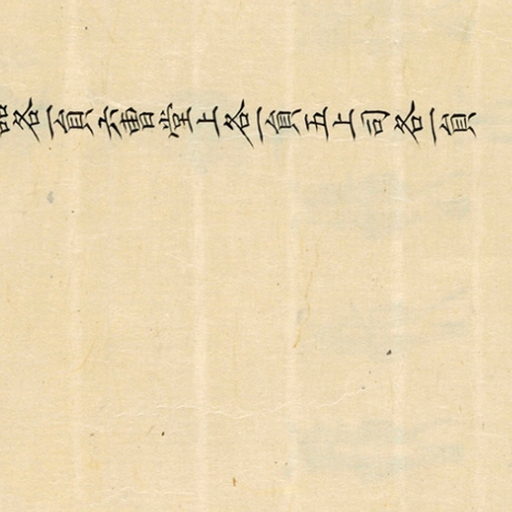 各一員六曹堂上各一員五上司各一員